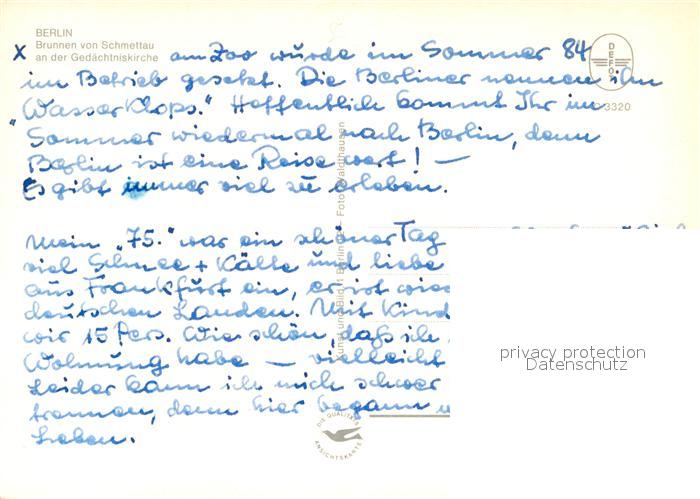 BERLIN
Brunnen von Schmettau
an der Gedächtniskirche
DEFOT
3320
x am Zoo wurde im Sommer 84
im Betrieb gesetzt. Die Berliner nennen ihn
"Wasser Klops." Hoffentlich kommt Ihr im
Sommer wiedermal nach Berlin, denn
Berlin ist eine Reise wert! —
Es gibt immer viel zu erleben.
Mein "75." war ein schöner Tag
viel Schnee + Kälte und liebe
aus Frankfurt ein, er ist
deutschen Landen. Mit Kind
wir 15 Pers. Wie schön, daß ich
Wohnung habe — vielleicht
Leider kann ich mich schwer
trennen, denn hier begann
Leben.
Kunst und Bild Berlin
Foto Waldthausen
DIE QUALITÄTS
ANSICHTSKARTE
privacy protection
Datenschutz